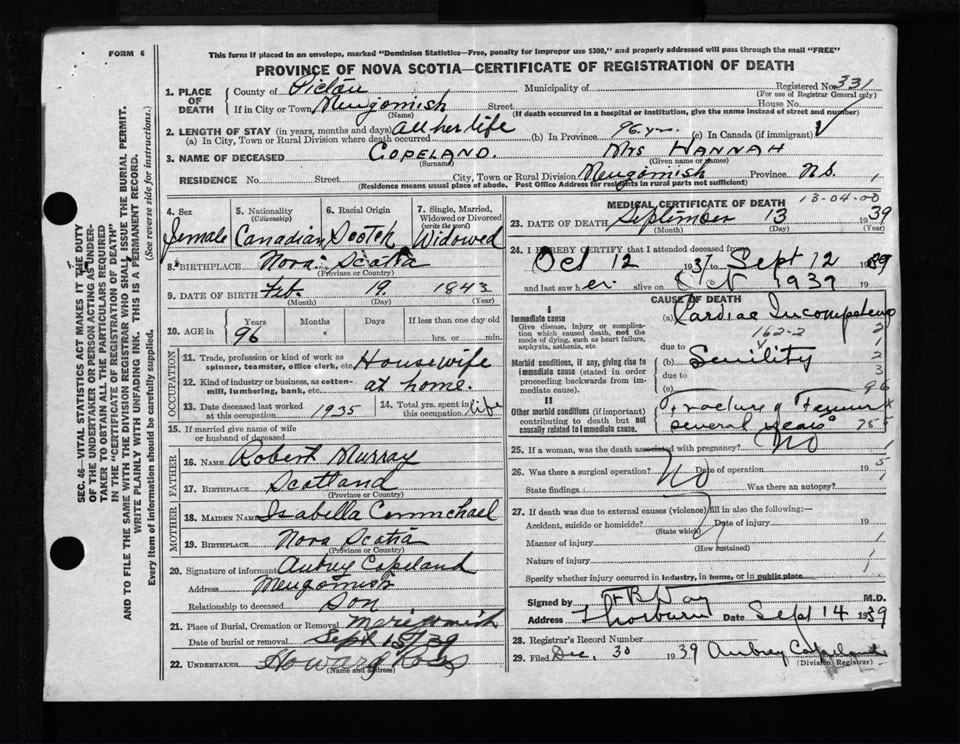 FORM 6
This form if placed in an envelope, marked "Dominion Statistics—Free, penalty for improper use $300," and properly addressed will pass through the mail "FREE"
PROVINCE OF NOVA SCOTIA—CERTIFICATE OF REGISTRATION OF DEATH
SEC. 46—VITAL STATISTICS ACT MAKES IT THE DUTY
OF THE UNDERTAKER OR PERSON ACTING AS UNDER-
TAKER TO OBTAIN ALL THE PARTICULARS REQUIRED
IN THE "CERTIFICATE OF REGISTRATION OF DEATH"
AND TO FILE THE SAME WITH THE DIVISION REGISTRAR WHO SHALL ISSUE THE BURIAL PERMIT.
WRITE PLAINLY WITH UNFADING INK. THIS IS A PERMANENT RECORD.
Every item of information should be carefully supplied. (See reverse side for instructions.)
1. PLACE OF DEATH County of Pictou Municipality of Registered No. 331
(For use of Registrar General only)
If in City or Town Merigomish Street House No.
(Name) (If death occurred in a hospital or institution, give the name instead of street and number)
2. LENGTH OF STAY (in years, months and days)
(a) In City, Town or Rural Division where death occurred All her life (b) In Province 96 yrs. (c) In Canada (if immigrant)
3. NAME OF DECEASED COPELAND. Mrs HANNAH
(Surname) (Given name or names)
RESIDENCE No. Street City, Town or Rural Division Merigomish Province N.S.
(Residence means usual place of abode. Post Office Address for residents in rural parts not sufficient)
4. Sex
Female
5. Nationality
(Citizenship)
Canadian
6. Racial Origin
Scotch
7. Single, Married,
Widowed or Divorced
(write the word)
Widowed
8. BIRTHPLACE Nova Scotia
(Province or Country)
9. DATE OF BIRTH Feb. 19 1843
(Month) (Day) (Year)
10. AGE in Years Months Days If less than one day old
96 hrs. or min.
OCCUPATION
11. Trade, profession or kind of work as
spinner, teamster, office clerk, etc. Housewife
12. Kind of industry or business, as cotton-
mill, lumbering, bank, etc. at home.
13. Date deceased last worked
at this occupation 1935
14. Total yrs. spent in
this occupation life
15. If married give name of wife
or husband of deceased
FATHER
16. NAME Robert Murray
17. BIRTHPLACE Scotland
(Province or Country)
MOTHER
18. MAIDEN NAME Isabella Carmichael
19. BIRTHPLACE Nova Scotia
(Province or Country)
20. Signature of informant Aubrey Copeland
Address Merigomish
Relationship to deceased Son
21. Place of Burial, Cremation or Removal Merigomish
Date of burial or removal Sept 15/39
22. UNDERTAKER Howard Ross
(Name and address)
MEDICAL CERTIFICATE OF DEATH
13-04-00
23. DATE OF DEATH September 13 1939
(Month) (Day) (Year)
24. I HEREBY CERTIFY that I attended deceased from
Oct 12 1937 to Sept 12 1939
and last saw her alive on 1939 19
CAUSE OF DEATH
I
Immediate cause
Give disease, injury or complica-
tion which caused death, not the
mode of dying, such as heart failure,
asphyxia, asthenia, etc.
(a) Cardiac Incompetency
162-2
due to
Morbid conditions, if any, giving rise to
immediate cause (stated in order
proceeding backwards from im-
mediate cause).
(b) Senility
due to
(c)
96
II
Other morbid conditions (if important)
contributing to death but not
causally related to immediate cause.
Fracture of Femur
several years
25. If a woman, was the death associated with pregnancy? No
26. Was there a surgical operation? No Date of operation 19
State findings Was there an autopsy?
27. If death was due to external causes (violence) fill in also the following:—
Accident, suicide or homicide? Date of injury 19
(State which)
Manner of injury
(How sustained)
Nature of injury
Specify whether injury occurred in industry, in home, or in public place
Signed by H B Day M.D.
Address Thorburn Date Sept 14 1939
28. Registrar's Record Number
29. Filed Dec. 30 1939 Aubrey Copeland
(Division Registrar)